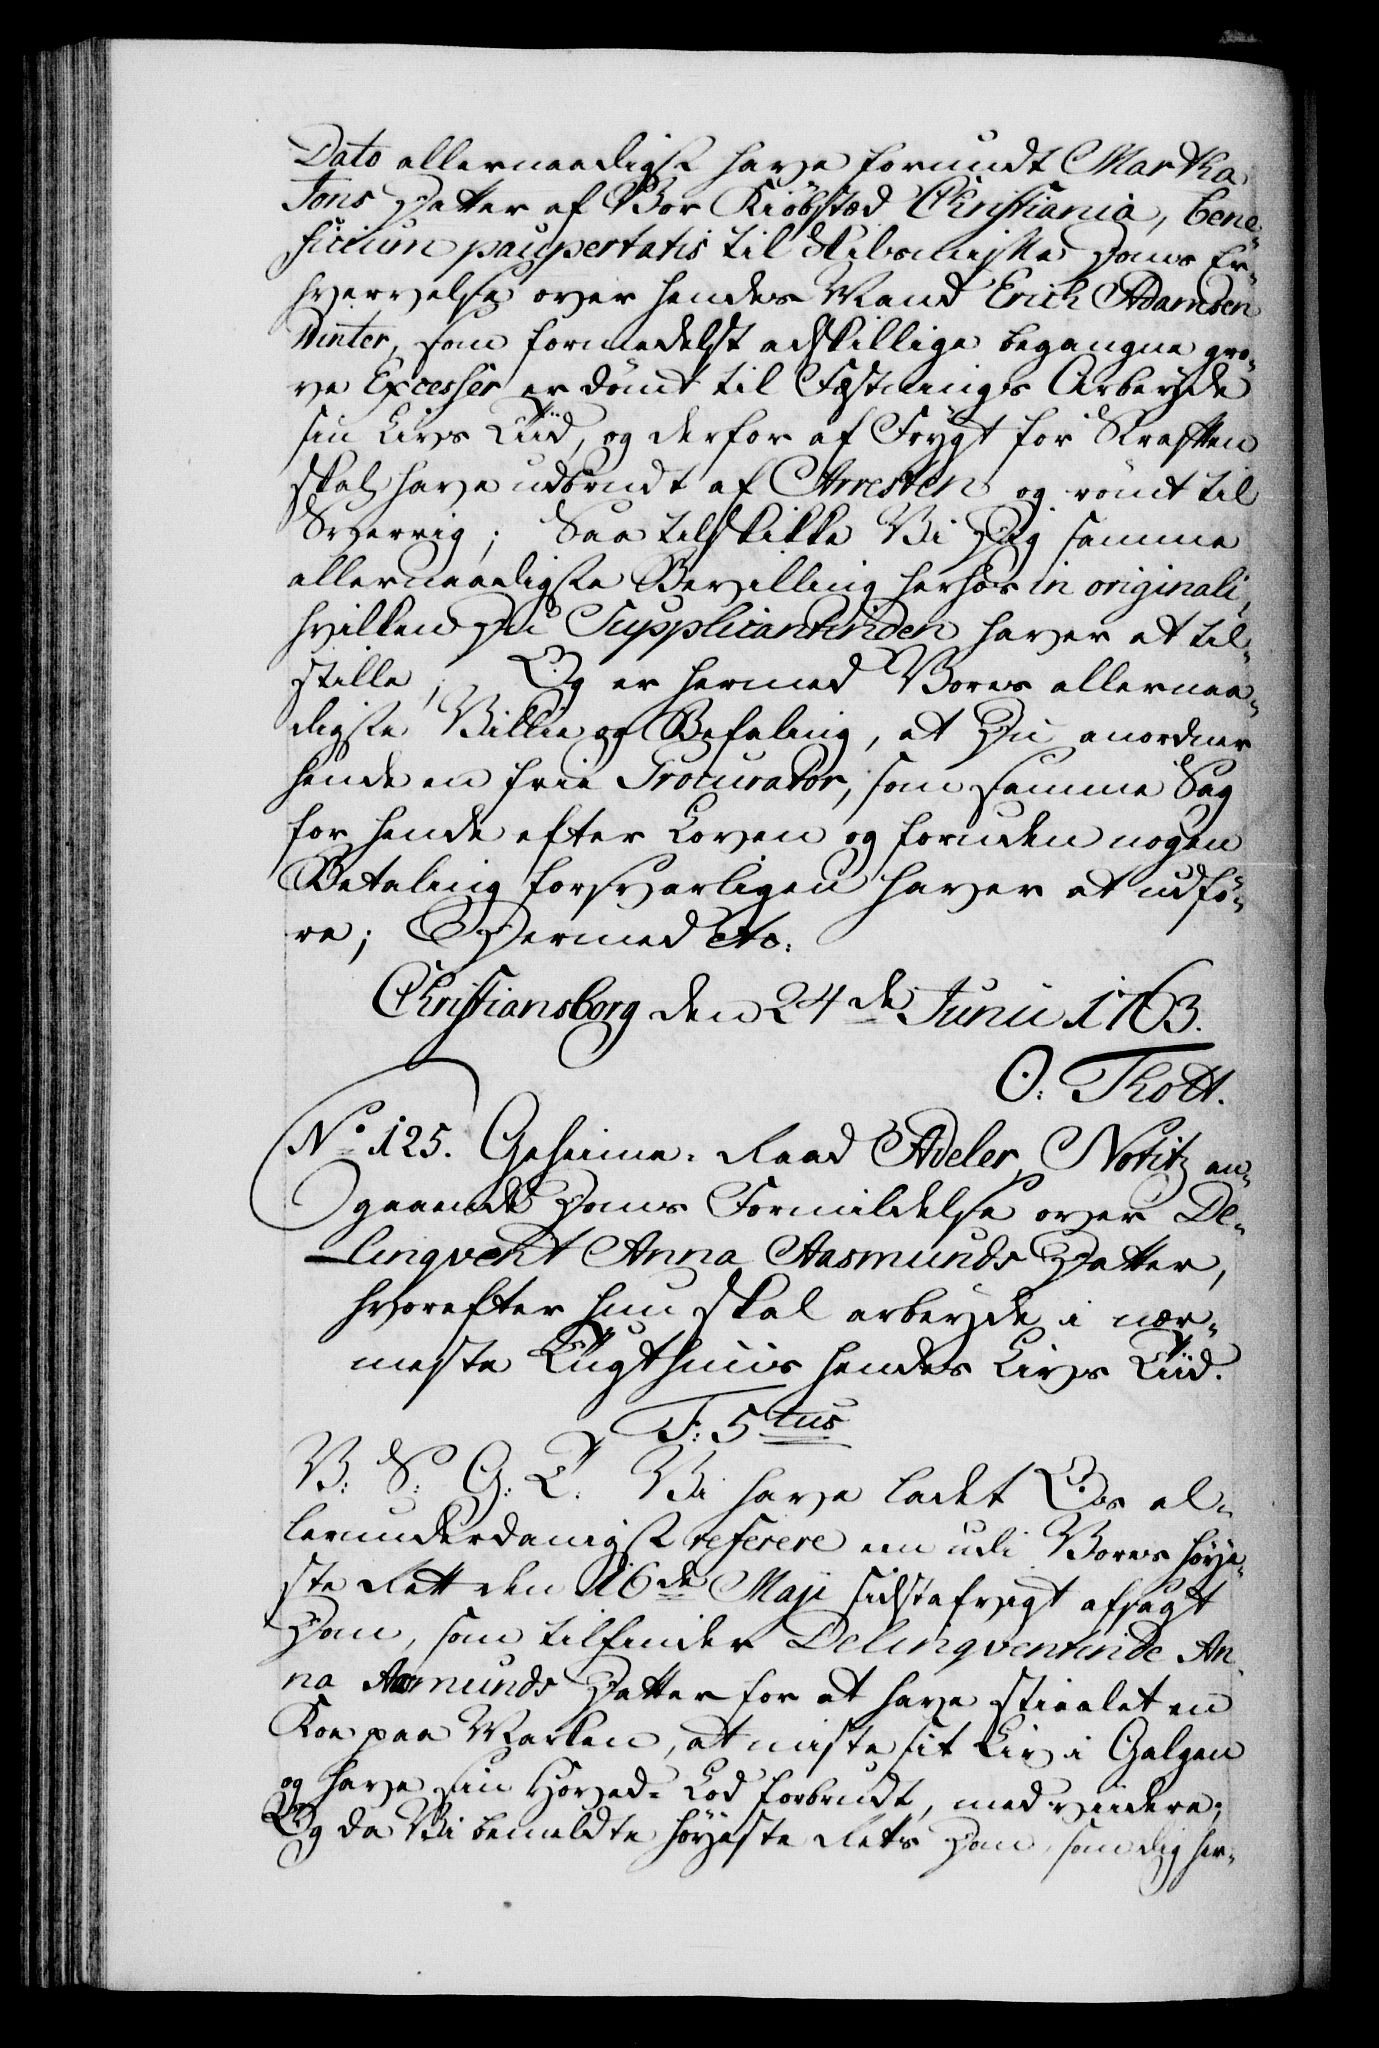 Dato allernaadigst have forundt Martha
Jons Datter af Vor Kiöbstæd Christiania, bene-
ficium paupertatis til Skilsmisse Doms Er-
hvervelse over hendes Mand Erich Adamsen
Winter, som formedelst adskillige begangne gro-
ve Excesser er dömt til Fæstnings Arbeyde
sin Livs Tiid, og derfor af Frygt for Straffen
skal have udbrudt af Arresten og römt til
Sverrig; Saa tilskikke Vi Dig samme
allernaadigste Bevilling herhos in originali,
hvilken Du Supplicantinden haver at til-
stille; Og er hermed Vores allernaa-
digste Villie og Befaling, at Du anordner
hende en frie Procurator, som samme Sag
for hende efter Loven og foruden nogen
Betaling forsvarligen haver at udfö-
re; Dermed etc:
Christiansborg den 24de Junii 1763.
O: Thott.
No 125. Geheime-Raad Adeler, Notitz an-
gaaende Doms Formildelse over De-
linqvent Anna Aasmunds Datter,
hvorefter hun skal arbeyde i nær-
meste Tugthuus hendes Livs Tiid.
F: 5tus
V: S: G: T. Vi have ladet Os al-
lerunderdanigst referere en udi Vores höye-
ste Rett den 16de Maji sidstafvigt afsagt
Dom, som tilfinder Delinqventinde An-
na Asmunds Datter for at have stiaalet en
Koe paa Marken, at miste sit Liv i Galgen
og have sin Hoved-Lod forbrudt, med viidere;
Og da Vi bemeldte höyeste Rets Dom, som dig her-